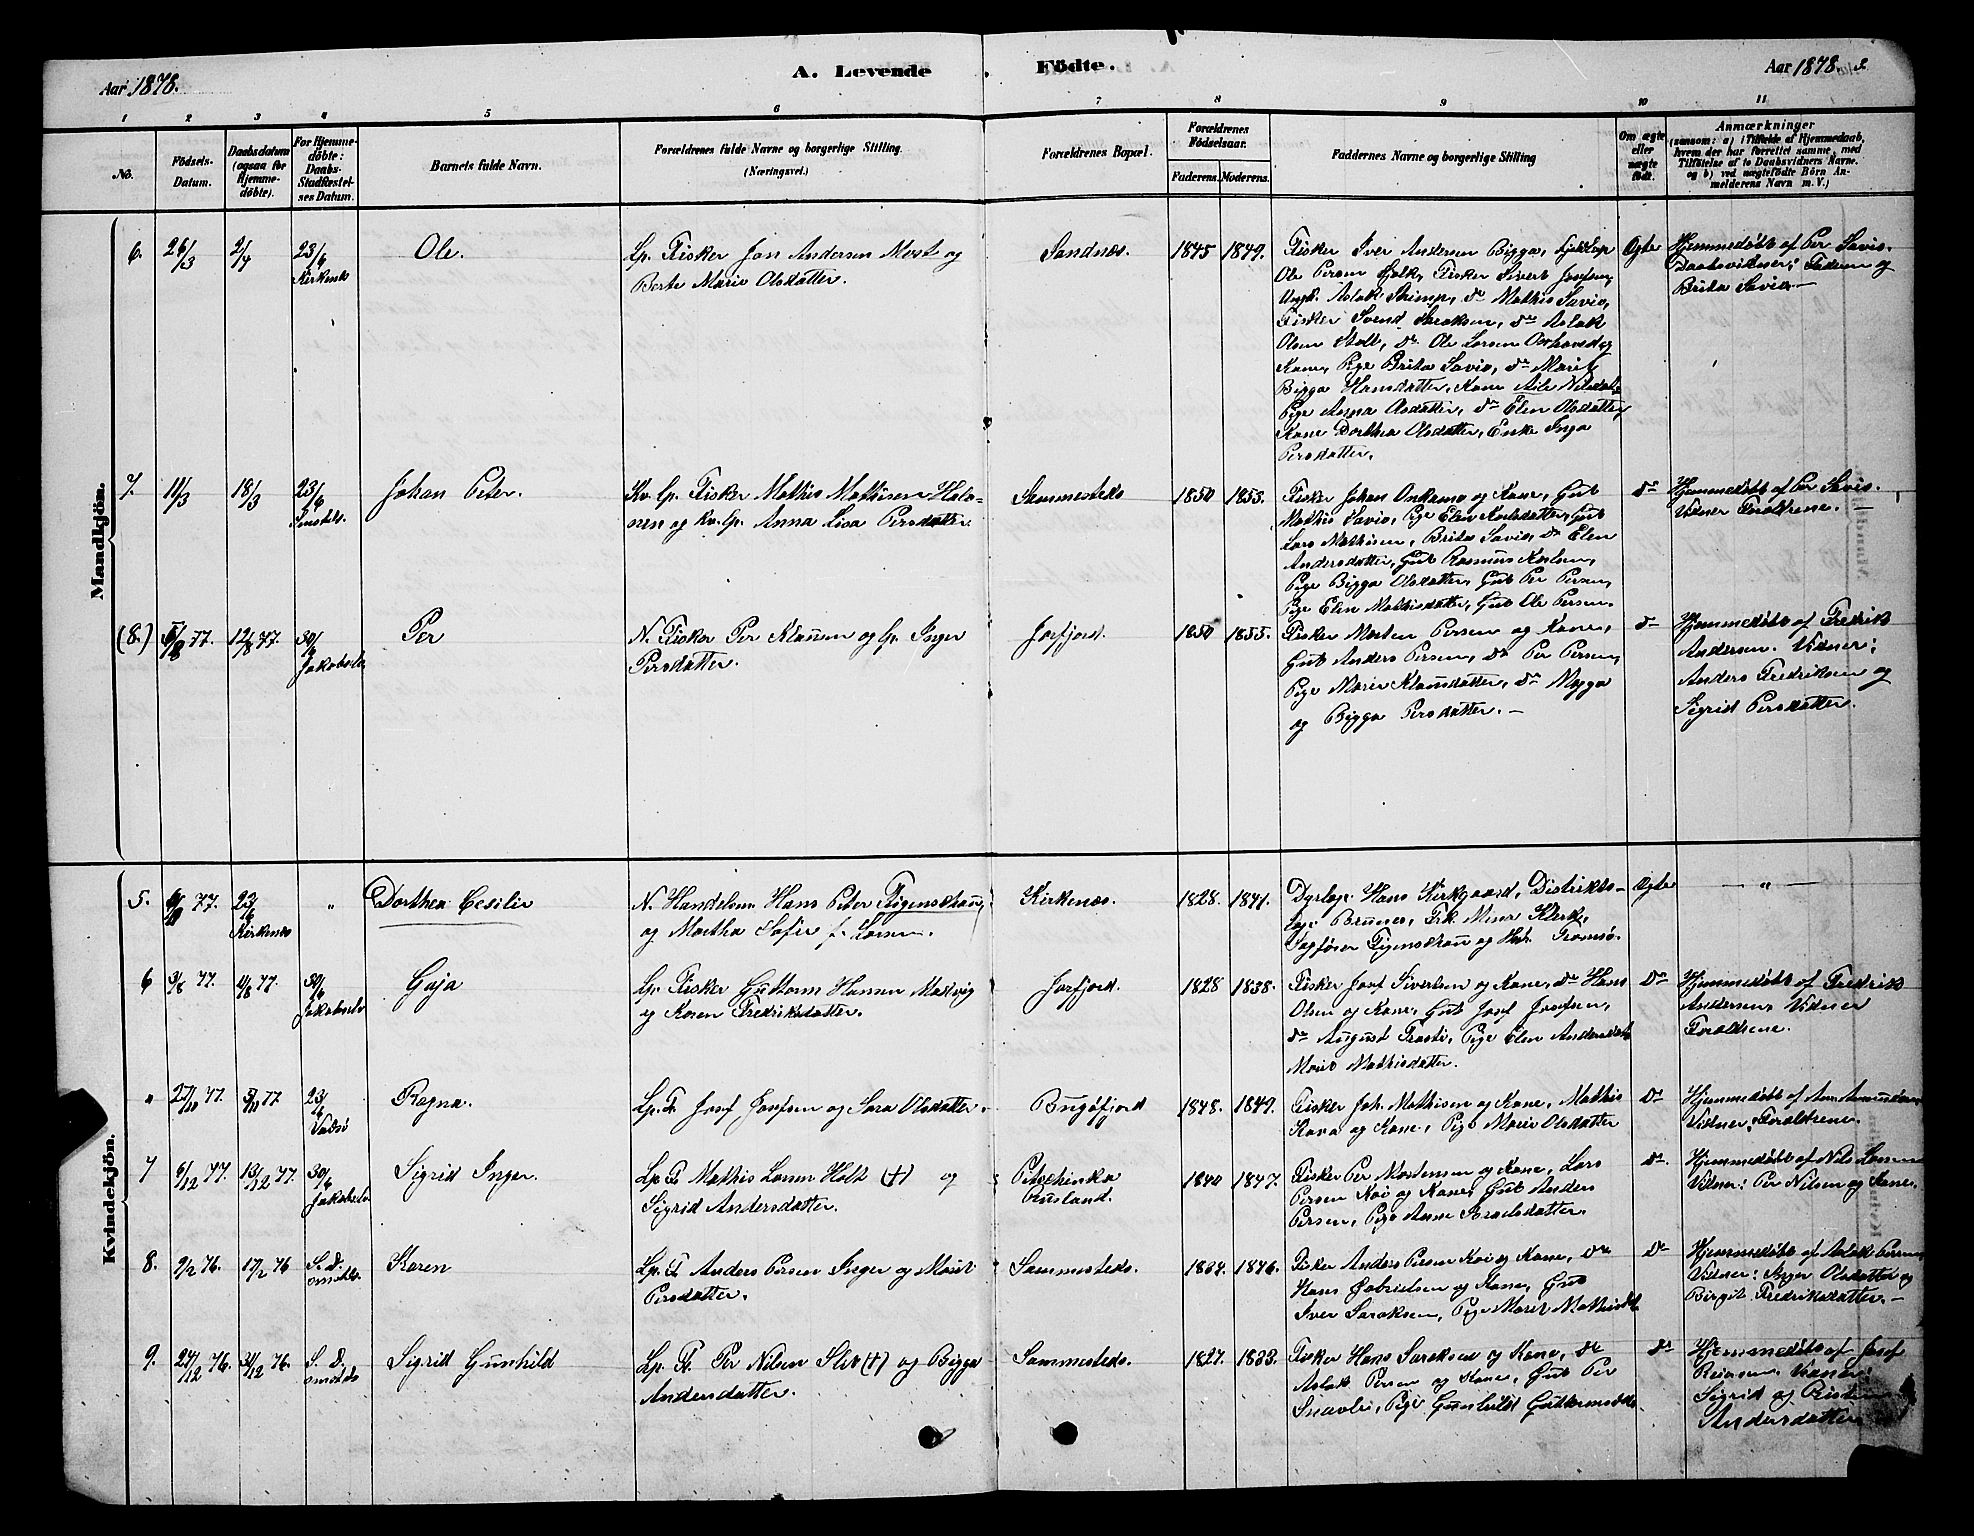 Aar 1878.
A. Levende
Födte.
Aar 1878.
1 2 3 4 5 6 7 8 9 10 11
No.
Födsels-
Datum.
Daabsdatum
(ogsaa for
Hjemme-
döbte).
For Hjemme-
döbte:
Daabs-
Stadfæstel-
ses Datum.
Barnets fulde Navn.
Forældrenes fulde Navne og borgerlige Stilling.
(Næringsvei.)
Forældrenes Bopæl.
Forældrenes
Födselsaar.
Faderens. Moderens.
Faddernes Navne og borgerlige Stilling
Om ægte
eller
uægte
födt.
Anmærkninger
(saasom: a) i Tilfælde af Hjemmedaab,
hvem der har forrettet samme, med
Tilföielse af to Daabsvidners Navne.
og b) ved uægtefödte Börn An-
melderens Navn m. V.)
Mandkjön.
6. 26/3 2/4 23/6 Kirkenæs
Ole.
Lp. Fisker Jon Andersen Mort og
Berte Marie Olsdatter.
Sandnæs.
1845 1849.
Fisker Iver Andersen Bigga,
Ole Persen Fisker Sivert Josefsen,
Ungk. Aslak do Mathis Savio,
Fisker Svend Saraksen, do Aslak
Olsen do Ole Larsen og
Kone, Pige Brita Savio, do Marit
Bigga Hansdatter, Kone
Pige Anna Olsdatter, do Elen Olsdatter,
Kone Dorthea Olsdatter, Enke Inga
Persdatter.
Ægte
Hjemmedöbt af Per Savio.
Daabsvidner: Faderen og
Brita Savio.—
7. 11/3 18/3 23/6
Johan Peter.
Kv. Lp. Fisker Mathis Mathisen Halo-
nen og Kv. Lp. Anna Lisa Persdatter
Sammesteds
1850 1853.
Fisker Johan Onkamo og Kone, Gut
Mathis Savio, Pige Elen Gut
Lars Mathisen, Brita Savio, do Elen
Andersdatter, Gut Rasmus Karlsen,
Pige Bigga Olsdatter, Gut Per Persen,
Pige Elen Mathisdatter, Gut Ole Persen.
do
Hjemmedöbt af Per Savio.
Vidner Forældrene. —
(8.) 77. 12/8 77. 30/6 Jakobselv
Per
N. Fisker Per Klausen og Lp. Inger
Persdatter.
Jarfjord.
1850 1855.
Fisker Morten Persen og Kone,
Gut Anders Persen, do Per Persen,
Pige Marie Klausdatter, do
og Bigga Persdatter.—
do
Hjemmedöbt af Fredrik
Andersen. Vidner:
Anders Fredriksen og
Sigrid Persdatter.
Kvindekjön.
5. 77. 23/6 Kirkenæs "
Dorthea Cesilie
N. Handelsm. Hans Peter Figenschau,
og Martha Sofie f. Larsen.
Kirkenæs.
1828. 1841.
Dyrlæge Hans Kirkgaard, Distrikts-
læge Brunes, Frk. Klerk,
Figenschau og Tromsö.
Ægte
— " —
6 3/8 77. 77. 30/6 Jakobselv
Gaja
Lp. Fisker Guttorm Hansen
og Karen Fredriksdatter.
Jarfjord.
1828 1838.
Fisker Josef Sivertsen og Kone, do Hans
Olsen og Kone, Gut Josef Josefsen,
do August Pige Elen
Marit Mathisdatter.
do
Hjemmedöbt af Fredrik
Andersen, Vidner
Forældrene.
" 77. 77 23/6 Vadsö
Ragna.
Lp. F. Josef Josefsen og Sara Olsdatter.
Bugöfjord
1848. 1849.
Fisker Joh. Mathisen og Kone, Mathis
og Kone, Pige Marie Olsdatter
do
Hjemmedöbt af
Vidner: Forældrene.
7 6/12 77. 13/12 77. 30/6 Jakobselv
Sigrid Inger.
Lp. F. Mathis Larsen Holt (+) og
Sigrid Andersdatter.
Petschinka
Rusland.
1840 1847.
Fisker Per Mortensen og Kone, Lars
Persen og Kone, Gut Anders
Persen, Pige Anne Israelsdatter.
do
Hjemmedöbt af Nils Larsen
Vidner: Per Nilsen og Kone.
8. 9/2 76. 17/2 76 S. D.
Karen
Lp. F. Anders Persen Inger og Marit
Persdatter.
Sammesteds.
1846.
Fisker Anders Persen og Kone, do
Hans Gabrielsen og Kone, Gut
Iver Saraksen, Pige Marit
do
Hjemmedöbt af Aslak Persen,
Vidner: Inger Olsdatter og
Birgit Fredriksdatter.—
9. 24/12 76. 31/12 76. S. D.
Sigrid Gunhild
Lp. F. Per Nilsen (+) og Bigga
Andersdatter.
Sammesteds.
1827. 1833.
Fisker Hans Saraksen og Kone, do
Aslak Persen og Kone, Gut Per
Pige Gunhild
do
Hjemmedöbt af Josef
Vidner:
Sigrid og
Andersdatter